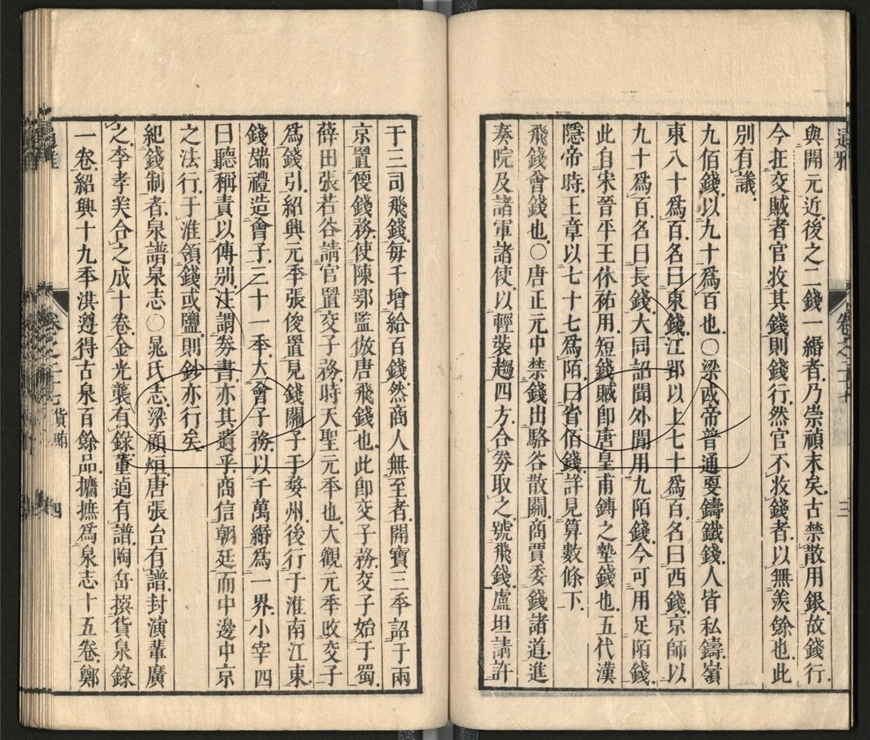 通雅
卷之二十七
三
與開元近後之二錢一緡者乃崇禎末矣古禁散用銀故錢行
今在交贓者官收其錢則錢行然官不收錢者以無羨餘也此
別有議
九佰錢以九十爲百也○梁武帝普通更鑄鐵錢人皆私鑄嶺
東八十爲百名曰東錢江郢以上七十爲百名曰西錢京師以
九十爲百名曰長錢大同詔聞外閒用九陌錢今可用足陌錢
此自宋晉平王休祐用短錢贓卽唐皇甫鎛之墊錢也五代漢
隱帝時王章以七十七爲陌曰省佰錢詳見算數條下
飛錢會錢也○唐正元中禁錢出駱谷散關商賈委錢諸道進
奏院及諸軍諸使以輕裝趨四方合券取之號飛錢盧坦請許
于三司飛錢每千增給百錢然商人無至者開寶三年詔于兩
京置便錢務使陳鄂監倣唐飛錢也此卽交子務交子始于蜀
薛田張若谷請官置交子務時天聖元年也大觀元年改交子
爲錢引紹興元年張俊置見錢關子于婺州後行于淮南江東
錢端禮造會子三十一年大會子務以千萬緡爲一界小宰四
曰聽稱責以傅別注謂券書亦其遺乎商信朝廷而中邊中京
之法行于淮領錢或鹽則鈔亦行矣
紀錢制者泉譜泉志○晁氏志梁顧烜唐張台有譜封演輩廣
之李孝美合之成十卷金光襲有錄董逌有譜陶岳撰貨泉錄
一卷紹興十九年洪遵得古泉百餘品摭撫爲泉志十五卷鄭
通雅
卷之二十七 貨賄
四